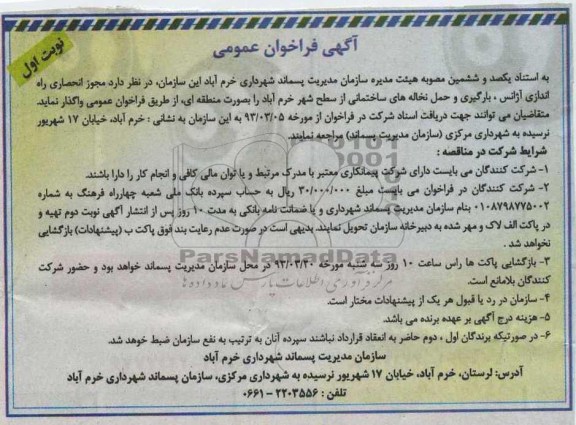 آگهی فراخوان عمومی
نوبت اول
به استناد یکصد و ششمین مصوبه هیئت مدیره سازمان مدیریت پسماند شهرداری خرم آباد این سازمان، در نظر دارد مجوز انحصاری راه
اندازی آژانس ، بارگیری و حمل نخاله های ساختمانی از سطح شهر خرم آباد را بصورت منطقه ای، از طریق فراخوان عمومی واگذار نماید.
متقاضیان می توانند جهت دریافت اسناد شرکت در فراخوان از مورخه ۹۳/۰۳/۰۵ به این سازمان به نشانی : خرم آباد، خیابان ۱۷ شهریور
نرسیده به شهرداری مرکزی (سازمان مدیریت پسماند) مراجعه نمایند.
شرایط شرکت در مناقصه :
۱- شرکت کنندگان می بایست دارای شرکت پیمانکاری معتبر با مدرک مرتبط و یا توان مالی کافی و انجام کار را دارا باشند.
۲- شرکت کنندگان در فراخوان می بایست مبلغ ۳۰/۰۰۰/۰۰۰ ریال به حساب سپرده بانک ملی شعبه چهارراه فرهنگ به شماره
۰۱۰۸۷۹۸۷۷۵۰۰۲ بنام سازمان مدیریت پسماند شهرداری و یا ضمانت نامه بانکی به مدت ۱۰ روز پس از انتشار آگهی نوبت دوم تهیه و
در پاکت الف لاک و مهر شده به دبیرخانه سازمان تحویل نمایند. بدیهی است در صورت عدم رعایت بند فوق پاکت ب (پیشنهادات) بازگشایی
نخواهد شد .
۳- بازگشایی پاکت ها راس ساعت ۱۰ روز سه شنبه مورخه ۹۳/۰۳/۲۰ در محل سازمان مدیریت پسماند خواهد بود و حضور شرکت
کنندگان بلامانع است.
۴- سازمان در رد یا قبول هر یک از پیشنهادات مختار است.
۵- هزینه درج آگهی بر عهده برنده می باشد.
۶- در صورتیکه برندگان اول ، دوم حاضر به انعقاد قرارداد نباشند سپرده آنان به ترتیب به نفع سازمان ضبط خواهد شد.
سازمان مدیریت پسماند شهرداری خرم آباد
آدرس: لرستان، خرم آباد، خیابان ۱۷ شهریور نرسیده به شهرداری مرکزی، سازمان پسماند شهرداری خرم آباد
تلفن : ۲۲۰۳۵۵۶ - ۰۶۶۱
ParsNamadData